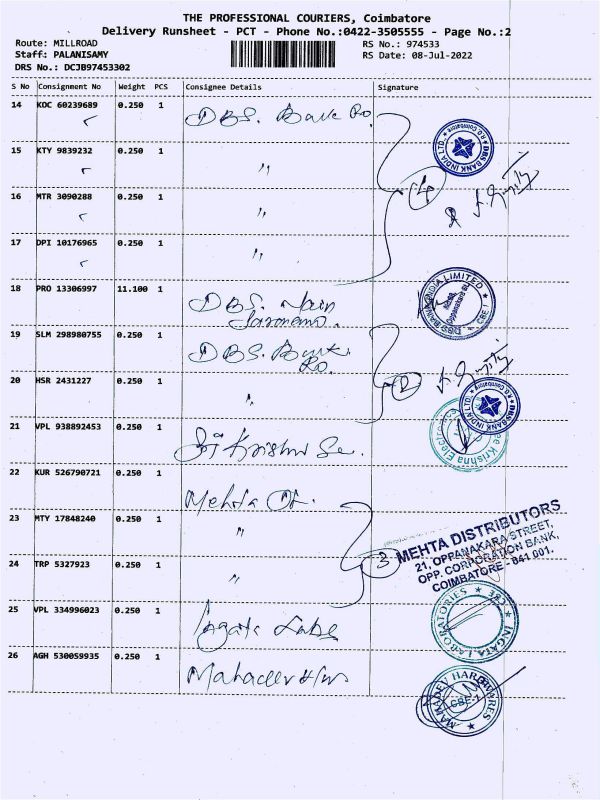 THE PROFESSIONAL COURIERS, Coimbatore
Delivery Runsheet - PCT - Phone No.:0422-3505555 - Page No.:2
Route: MILLROAD
RS No.: 974533
Staff: PALANISAMY
RS Date: 08-Jul-2022
DRS No.: DCJB97453302
S No Consignment No Weight PCS Consignee Details Signature
14 KOC 60239689 0.250 1 DBS. Bank Ro.
15 KTY 9839232 0.250 1 "
16 MTR 3090288 0.250 1 "
17 DPI 10176965 0.250 1 "
4
DBS BANK INDIA LTD. R.O. Coimbatore
18 PRO 13306997 11.100 1 DBS. Main
DBS BANK INDIA LIMITED CBE Oppanakara St
19 SLM 298980755 0.250 1 DBS. Bank
Ro.
20 HSR 2431227 0.250 1 "
2
DBS BANK INDIA LTD. R.O. Coimbatore
21 VPL 938892453 0.250 1 Sri Krishna Se.
Sree Krishna Electro
22 KUR 526790721 0.250 1 Mehta
23 MTY 17848240 0.250 1 "
24 TRP 5327923 0.250 1 "
3
MEHTA DISTRIBUTORS
21, OPPANAKARA STREET,
OPP. CORPORATION BANK,
COIMBATORE - 641 001.
25 VPL 334996023 0.250 1 Ingata Labs
INGATA LABORATORIES
26 AGH 530059935 0.250 1 Mahadev H/ws
MAHADEV HARDWARES CBE-1